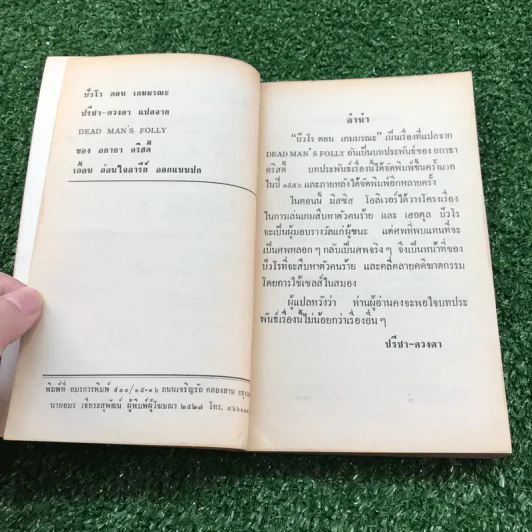 บัวโร ตอน เกมมรณะ
ปรีชา-ดวงตา แปลจาก
DEAD MAN'S FOLLY
ของ อกาธา คริสตี้
เตือน อ่อนใจอารีย์ ออกแบบปก
พิมพ์ที่ อมรการพิมพ์ ๕๑๐/๑๕-๑๖ ถนนเจริญรัถ คลองสาน
นายอมร เจียระสุพัฒน์ ผู้พิมพ์ผู้โฆษณา ๒๕๒๗ โทร.
คำนำ
"บัวโร ตอน เกมมรณะ" เป็นเรื่องที่แปลจาก
DEAD MAN'S FOLLY อันเป็นบทประพันธ์ของ อกาธา
คริสตี้ บทประพันธ์เรื่องนี้ได้จัดพิมพ์ขึ้นครั้งแรก
ในปี ๑๙๕๖ และภายหลังได้จัดพิมพ์อีกหลายครั้ง
ในตอนนี้ มิสซิส โอลิเวอร์ได้วางโครงเรื่อง
ในการเล่นเกมสืบหาตัวคนร้าย และ เฮอคูล บัวโร
จะเป็นผู้มอบรางวัลแก่ผู้ชนะ แต่ศพที่พบแทนที่จะ
เป็นศพหลอก ๆ กลับเป็นศพจริง ๆ จึงเป็นหน้าที่ของ
บัวโรที่จะสืบหาตัวคนร้าย และคลี่คลายคดีฆาตกรรม
โดยการใช้เซลส์ในสมอง
ผู้แปลหวังว่า ท่านผู้อ่านคงจะพอใจบทประ
พันธ์เรื่องนี้ไม่น้อยกว่าเรื่องอื่น ๆ
ปรีชา-ดวงตา